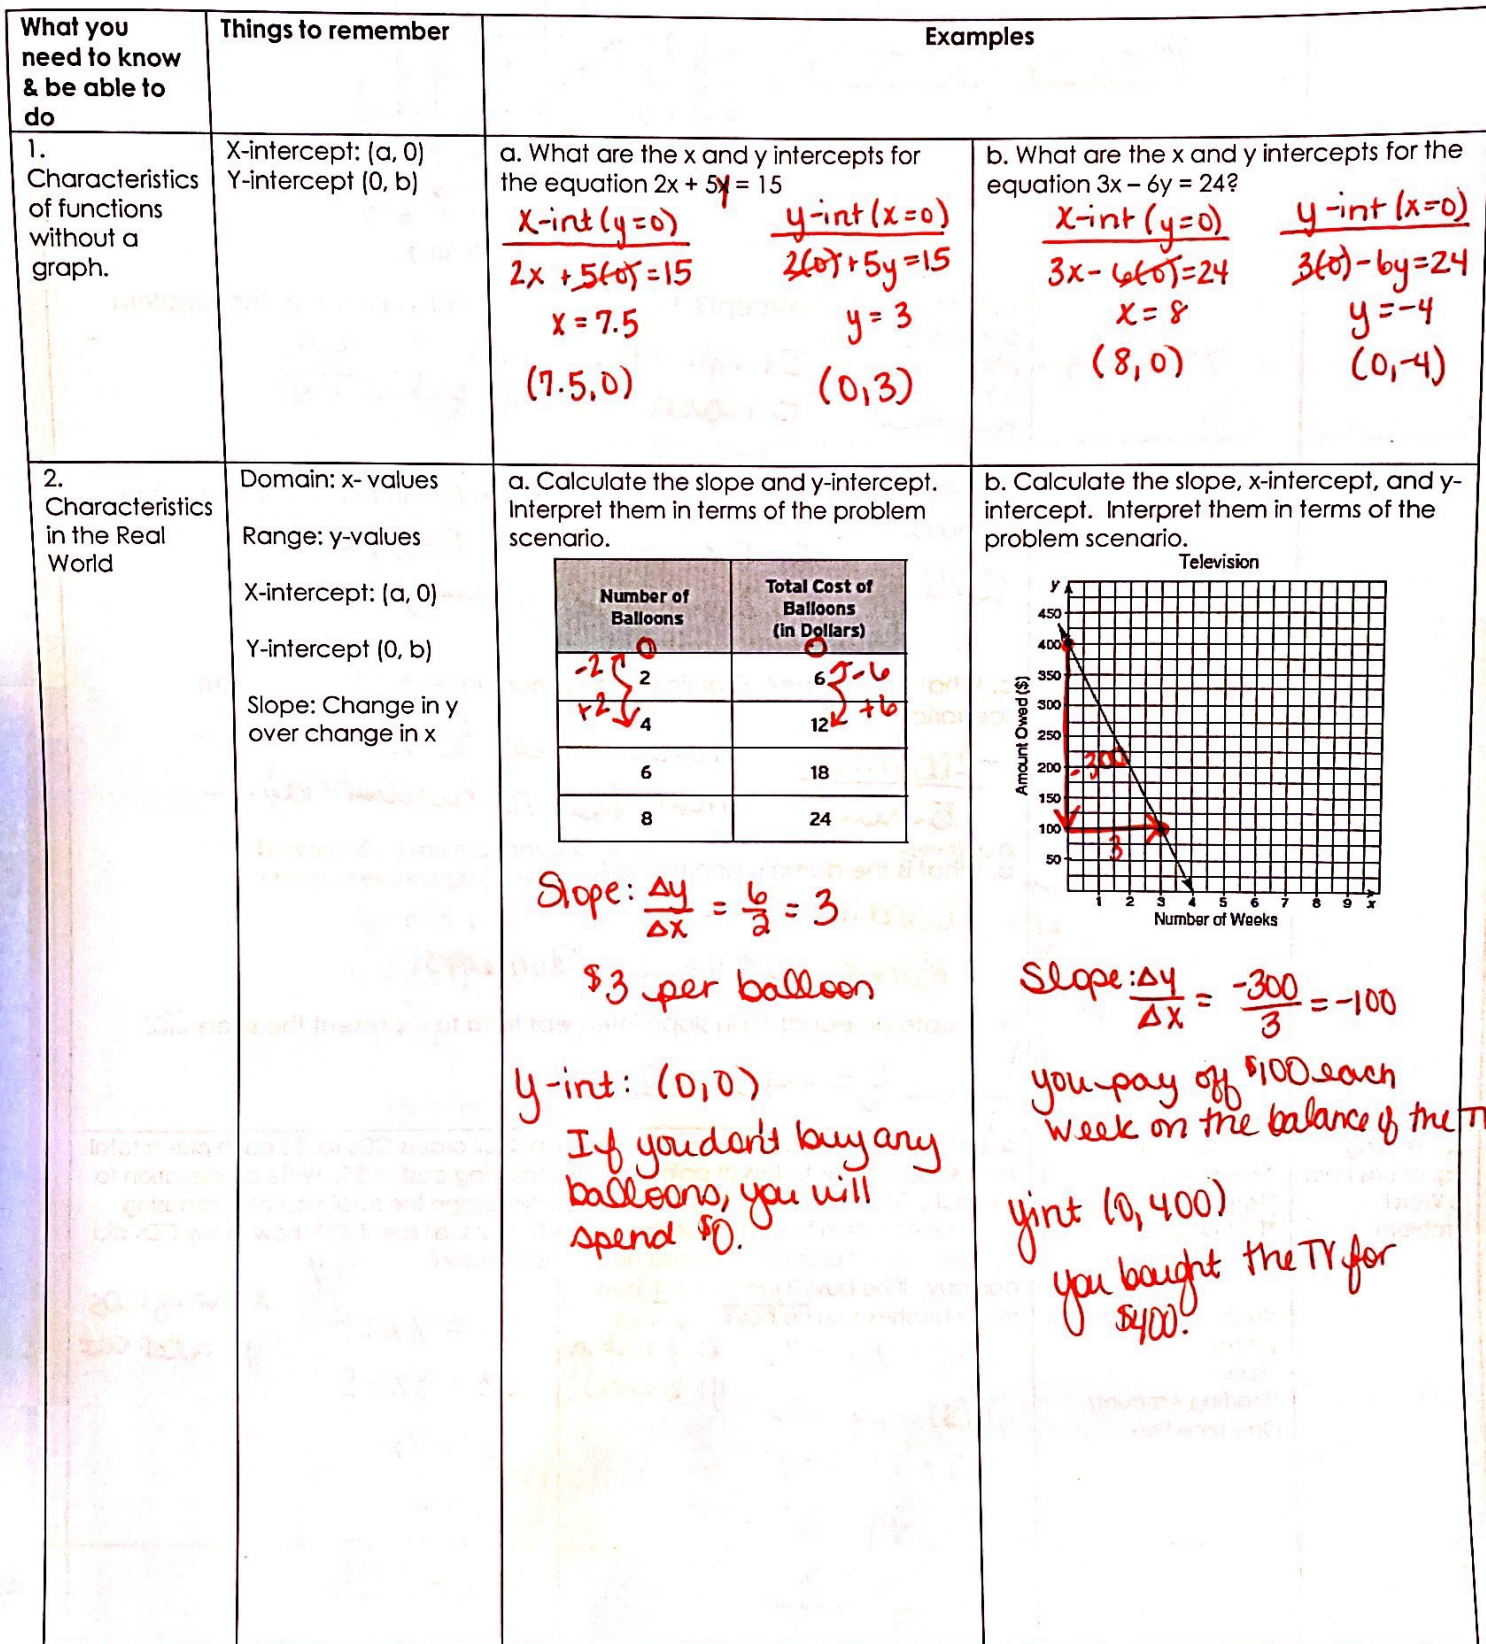 What you
need to know
& be able to
do
Things to remember
Examples
1.
Characteristics
of functions
without a
graph.
X-intercept: (a, 0)
Y-intercept (0, b)
a. What are the x and y intercepts for
the equation 2x + 5y = 15
x-int (y=0)
2x + 5(0) = 15
x = 7.5
(7.5, 0)
y-int (x=0)
2(0) + 5y = 15
y = 3
(0, 3)
b. What are the x and y intercepts for the
equation 3x – 6y = 24?
x-int (y=0)
3x - 6(0) = 24
x = 8
(8, 0)
y-int (x=0)
3(0) - 6y = 24
y = -4
(0, -4)
2.
Characteristics
in the Real
World
Domain: x- values
Range: y-values
X-intercept: (a, 0)
Y-intercept (0, b)
Slope: Change in y
over change in x
a. Calculate the slope and y-intercept.
Interpret them in terms of the problem
scenario.
Number of
Balloons
Total Cost of
Balloons
(in Dollars)
0 0
-2 2 6 -6
+2 4 12 +6
6 18
8 24
Slope: Δy/Δx = 6/2 = 3
$3 per balloon
y-int: (0,0)
If you don't buy any
balloons, you will
spend $0.
b. Calculate the slope, x-intercept, and y-
intercept. Interpret them in terms of the
problem scenario.
Television
y
450
400
350
300
250
200
150
100
50
Amount Owed ($)
-300
3
1 2 3 4 5 6 7 8 9 x
Number of Weeks
Slope: Δy/Δx = -300/3 = -100
you pay off $100 each
week on the balance of the T
yint (0, 400)
you bought the TV for
$400.